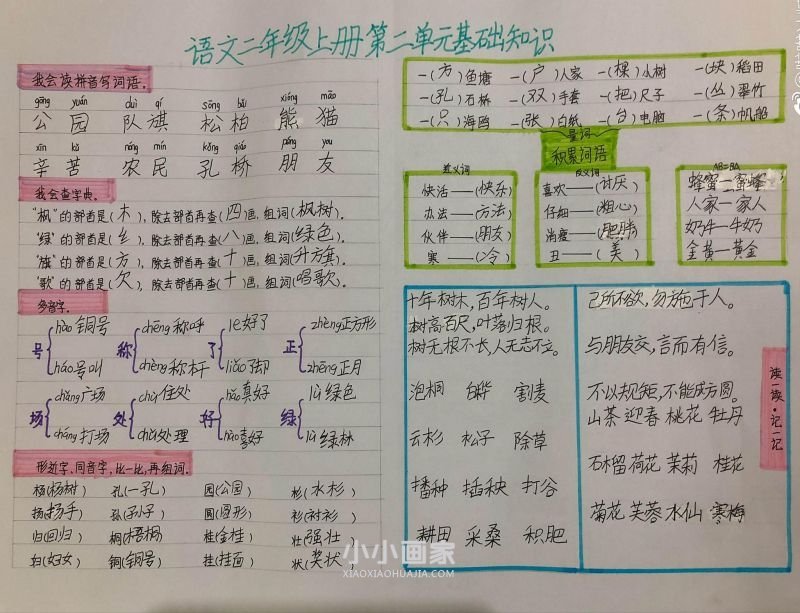 语文二年级上册第二单元基础知识
我会读拼音写词语.
gōng yuán duì qí sōng bǎi xióng māo
公 园 队 旗 松 柏 熊 猫
xīn kǔ nóng mín kǒng qiáo péng you
辛 苦 农 民 孔 桥 朋 友
我会查字典.
"枫"的部首是(木),除去部首再查(四)画,组词(枫树).
"绿"的部首是(纟),除去部首再查(八)画,组词(绿色).
"旗"的部首是(方),除去部首再查(十)画,组词(升方旗).
"歌"的部首是(欠),除去部首再查(十)画,组词(唱歌).
多音字.
号 hào 铜号 háo 号叫
称 chēng 称呼 chèng 称杆
了 le 好了 liǎo 了却
正 zhèng 正方形 zhēng 正月
场 chǎng 广场 cháng 打场
处 chù 住处 chǔ 处理
好 hǎo 真好 hào 喜好
绿 lǜ 绿色 lù 绿林
形近字、同音字,比一比,再组词.
杨(杨树) 孔(一孔) 园(公园) 杉(水杉)
扬(扬手) 孙(孙子) 圆(圆形) 衫(衬衫)
归(回归) 桐(梧桐) 桂(金桂) 壮(强壮)
妇(妇女) 铜(铜号) 挂(挂面) 状(奖状)
一(方)鱼塘 一(户)人家 一(棵)小树 一(块)稻田
一(孔)石桥 一(双)手套 一(把)尺子 一(丛)翠竹
一(只)海鸥 一(张)白纸 一(台)电脑 一(条)帆船
量词
积累词语
近义词
快活——(快乐)
办法——(方法)
伙伴——(朋友)
寒——(冷)
反义词
喜欢——(讨厌)
仔细——(粗心)
消瘦——(肥胖)
丑——(美)
AB=BA
蜂蜜—蜜蜂
人家—家人
奶牛—牛奶
金黄—黄金
十年树木,百年树人。
树高百尺,叶落归根。
树无根不长,人无志不立。
泡桐 白桦 割麦
云杉 松子 除草
播种 插秧 打谷
耕田 采桑 积肥
己所不欲,勿施于人。
与朋友交,言而有信。
不以规矩,不能成方圆。
山茶 迎春 桃花 牡丹
石榴 荷花 茉莉 桂花
菊花 芙蓉 水仙 寒梅
读一读·记一记
小小画家
XIAOXIAOHUAJIA.COM